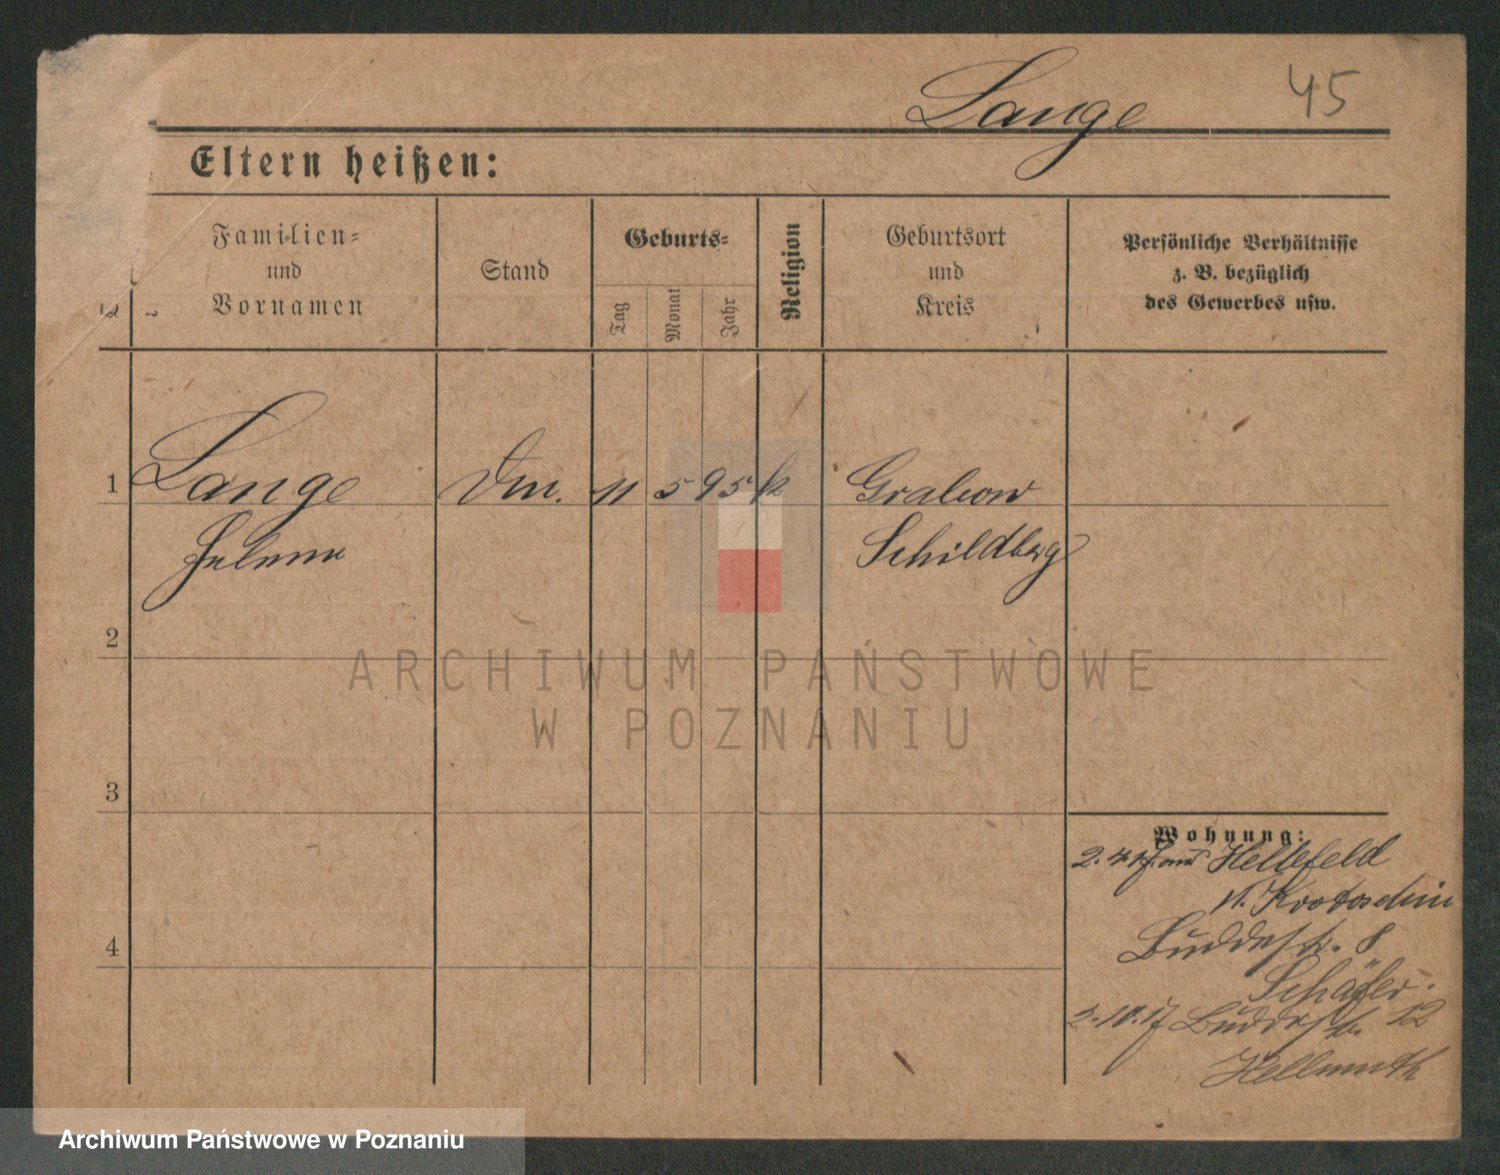 Lange
45
Eltern heißen:
Familien-
und
Vornamen
Stand
Geburts-
Tag
Monat
Jahr
Religion
Geburtsort
und
Kreis
Persönliche Verhältnisse
z. B. bezüglich
des Gewerbes usw.
1
Lange
Helene
11
5
95
k
Grabow
Schildberg
2
3
4
Wohnung:
2. 4. 17. aus Hellefeld
Kr. Krotoschin
Buddestr. 8
Schäfer.
2. 10. 17 Buddestr. 12
Hellmuth
ARCHIWUM PAŃSTWOWE
W POZNANIU
Archiwum Państwowe w Poznaniu